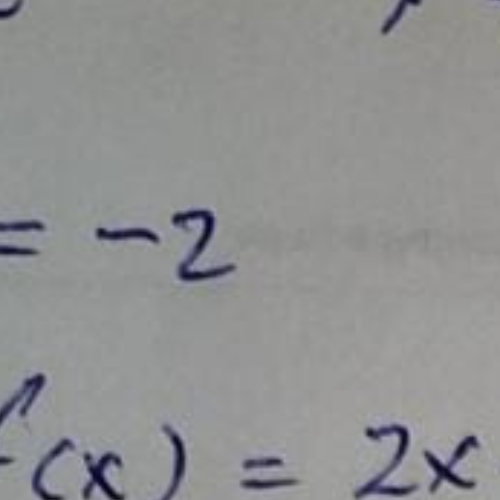 = -2
f(x) = 2x